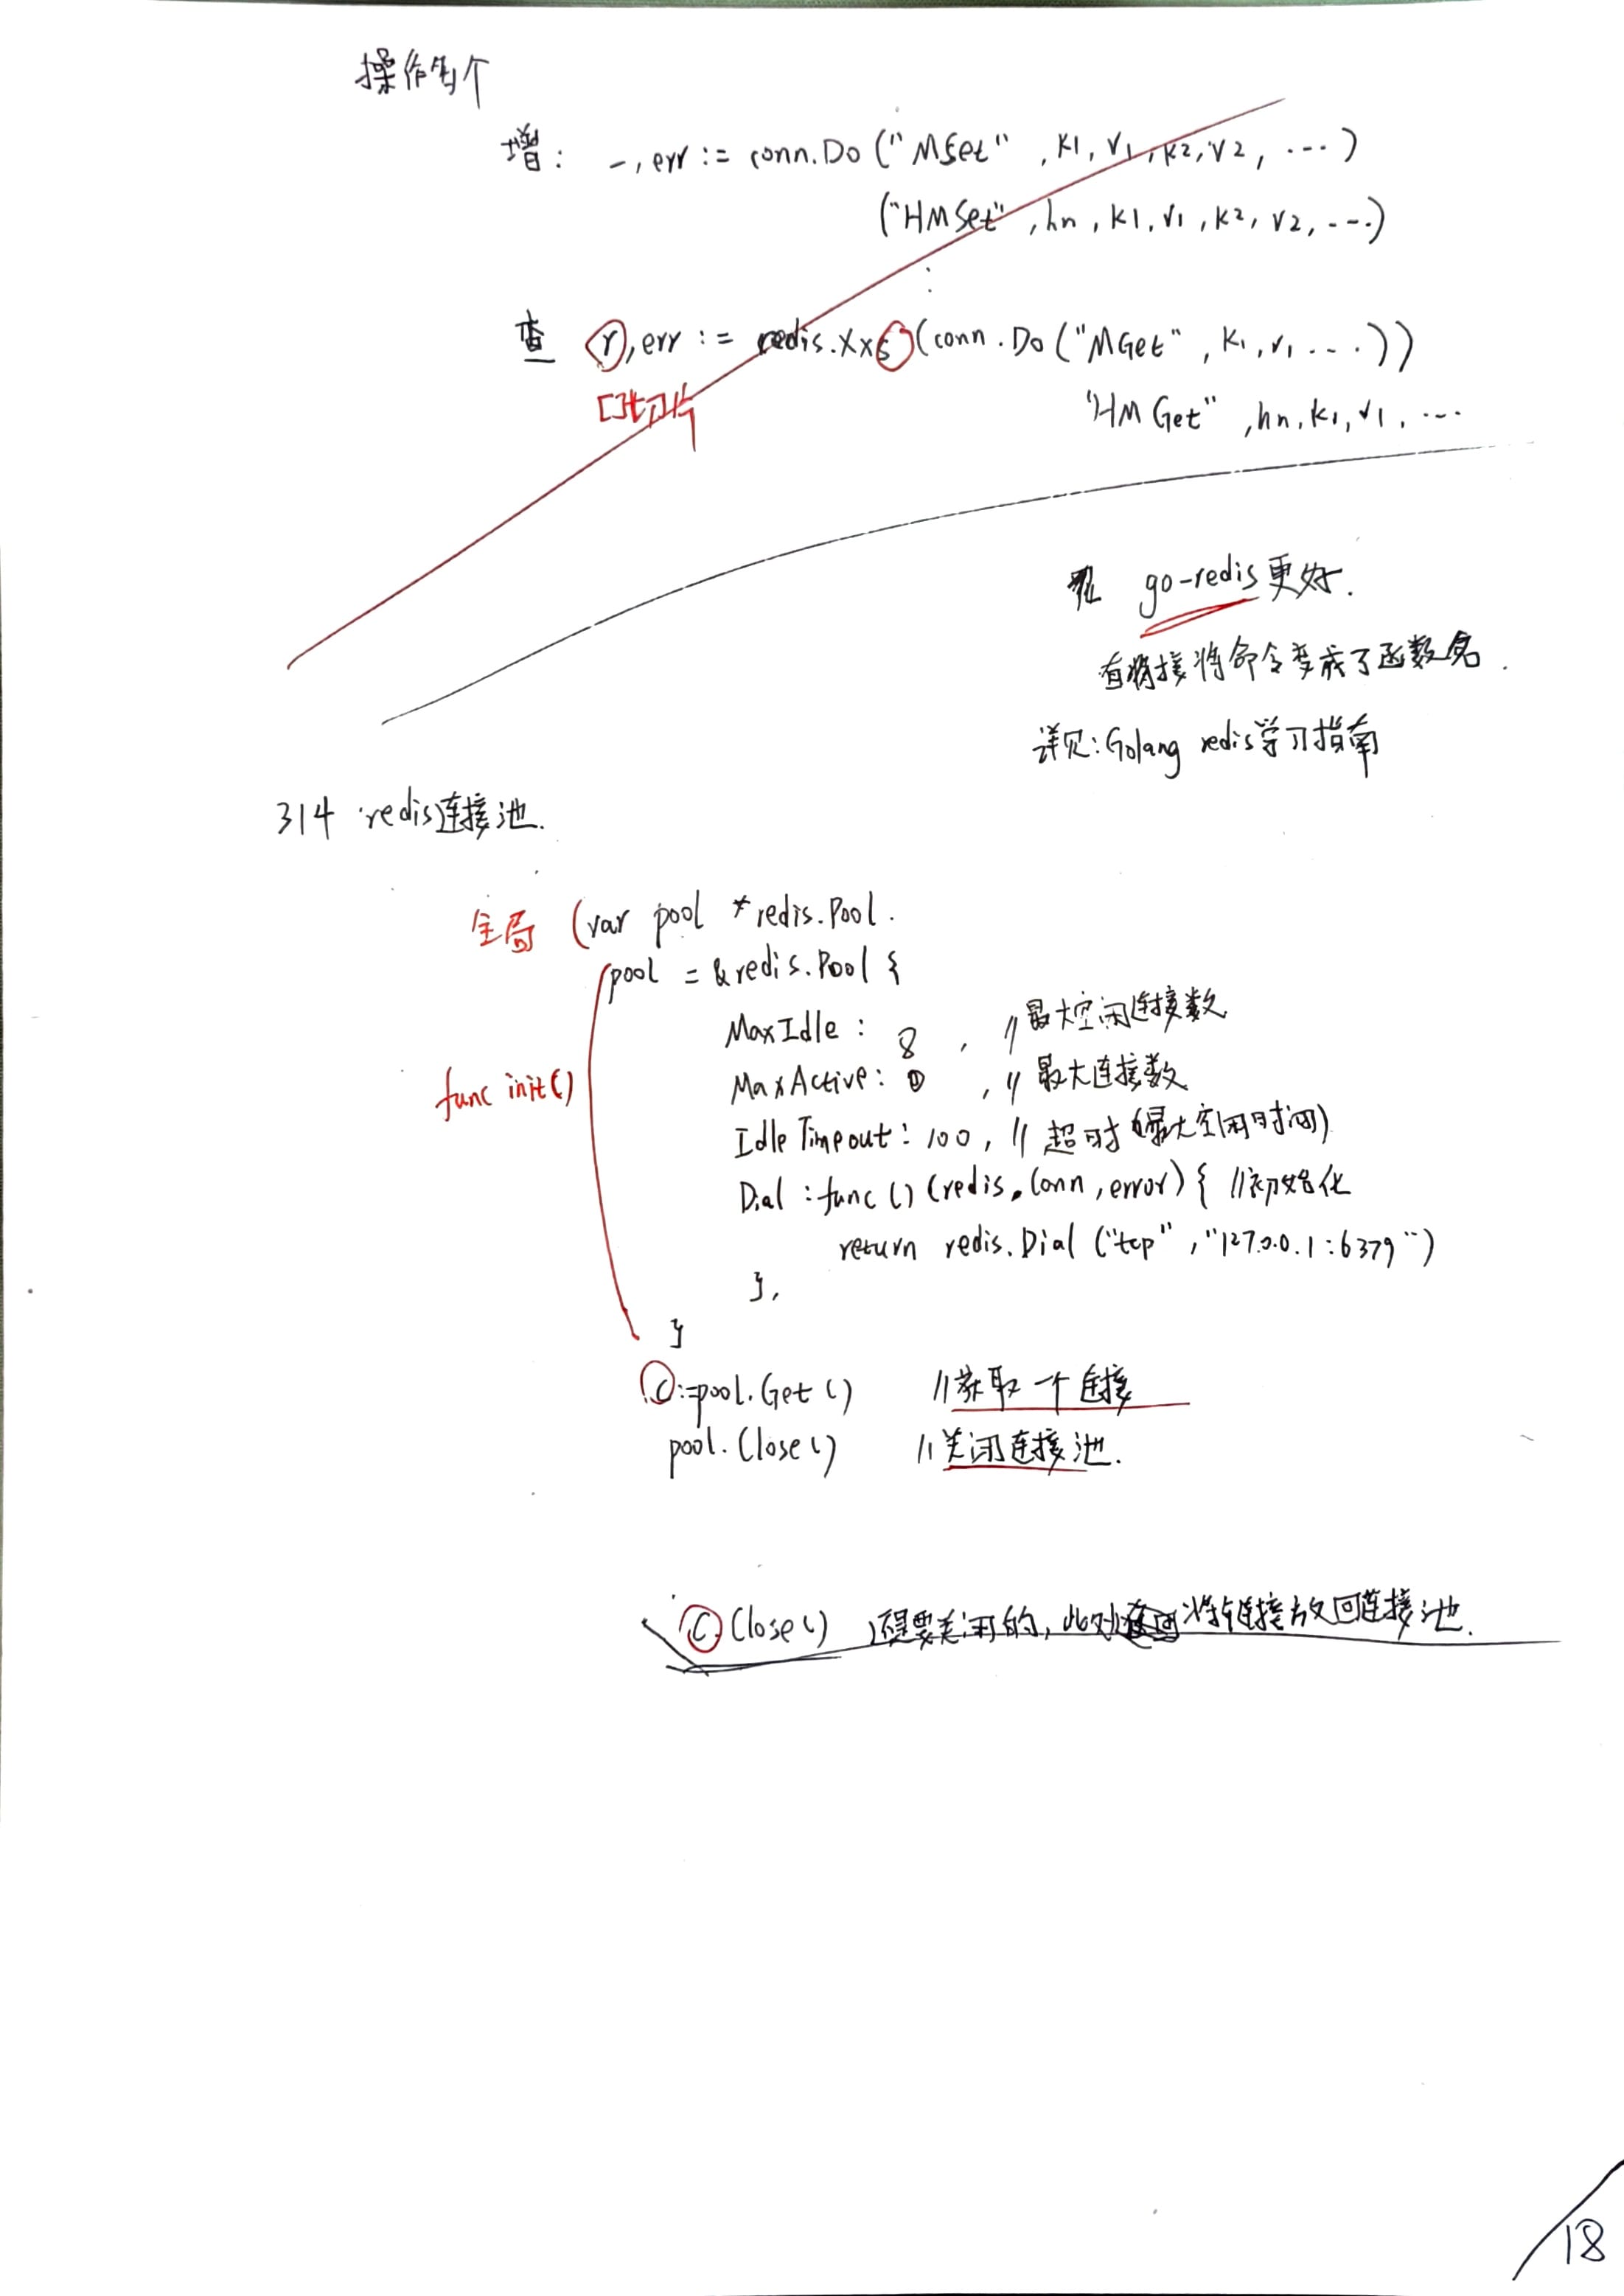 操作多个
增: _,err := conn.Do("MSet", k1, v1, k2, v2, ...)
("HMSet", hn, k1, v1, k2, v2, ...)
查 r,err := redis.Xxs(conn.Do("MGet", k1, v1 ...))
切片
"HMGet", hn, k1, v1, ...
go-redis更好.
直接将命令变成了函数名.
详见:Golang redis学习指南
314 redis连接池.
全局 (var pool *redis.Pool.
pool = &redis.Pool {
MaxIdle: 8, //最大空闲连接数
func init()
MaxActive: 0, //最大连接数
IdleTimeout: 100, //超时(最大空闲时间)
Dial: func()(redis.Conn, error) { //初始化
return redis.Dial("tcp", "127.0.0.1:6379")
},
}
c:=pool.Get() //获取一个连接
pool.Close() //关闭连接池.
c.Close() 还是要关闭的, 此处将链接放回连接池.
18